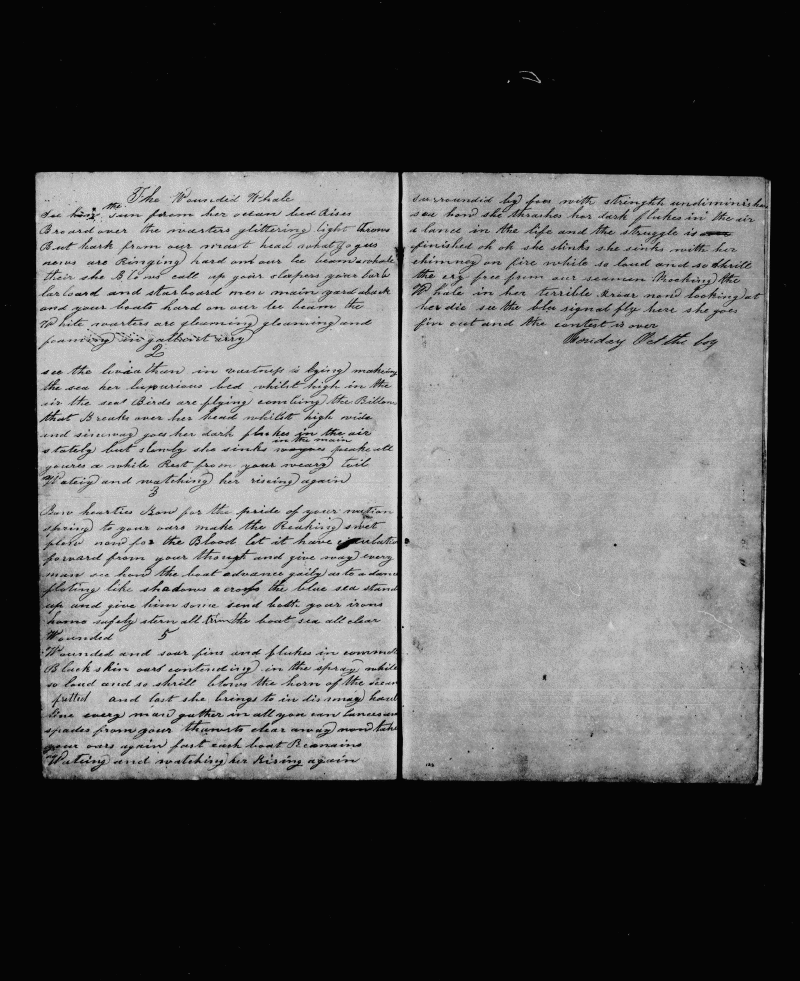 The Wounded Whale
See how the sun from her ocean bed Rises
Broard over the warters glittering light throws
But hark from our mast head what Joyus
news are Ringing hard on our lee beam a whale
their she Blows call up your slapers your larb
larboard and starboard men main yard aback
and your boats hard on our lee beam the
White warters are gleaming gleaming and
foaming in
2
see the leviathan in vastness is lying making
the sea her luxurious bed whilst high in the
air the sea Birds are flying comting the Billows
that Breaks over her head whilst high wide
and sincuway goes her dark flukes in the air
stately but slowly she sinks in the main peake all
youres a while Rest from your weary toil
Wateig and watching her riseing again
3
Bow hearties Bow for the pride of your nation
spring to your oars make the Reaking swet
plow now for the Blood let it have
forward from your thought and give way every
man see how the boat advance gaily as to a dance
floting like shadows across the blue sea stand
up and give him some send both your irons
home safely stern all the boat sea all clear
Wounded 5
Wounded and soar fins and flukes in commot
Black skin oars contending in the spray while
so loud and so shrill blows the horn of the ocean
and last she brings to in dismay haul
line every man gather in all you can lances and
spades from your thawrts clear away now take
your oars again fast each boat Remains
Wateing and watching her Rising again
surrounded by foes with strength undiminished
sea bond she thrashes her dark flukes in the air
a lance in the life and the struggle is
finished oh oh she slinks she sinks with her
chimney on fire while so loud and so shrill
the cry free from our seamen Mocking the
Whale in her terrible Roar now looking at
her die see the blu signal fly here she goes
fin out and the contest is over